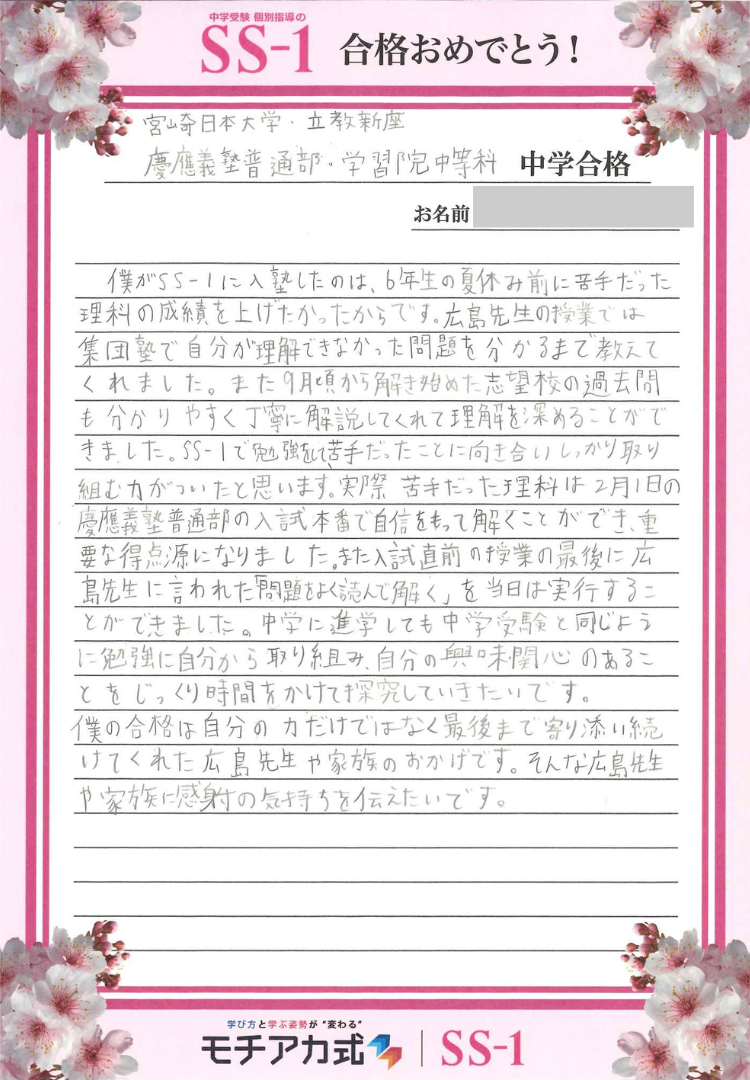 中学受験 個別指導の
SS-1 合格おめでとう!
宮崎日本大学・立教新座
慶應義塾普通部・学習院中等科 中学合格
お名前
僕がSS-1に入塾したのは、6年生の夏休み前に苦手だった
理科の成績を上げたかったからです。広島先生の授業では
集団塾で自分が理解できなかった問題を分かるまで教えて
くれました。また9月頃から解き始めた志望校の過去問
も分かりやすく丁寧に解説してくれて理解を深めることがで
きました。SS-1で勉強をして苦手だったことに向き合いしっかり取り
組む力がついたと思います。実際苦手だった理科は2月1日の
慶應義塾普通部の入試本番で自信をもって解くことができ、重
要な得点源になりました。また入試直前の授業の最後に広
島先生に言われた「問題をよく読んで解く」を当日は実行するこ
とができました。中学に進学しても中学受験と同じよう
に勉強に自分から取り組み、自分の興味関心のあるこ
とをじっくり時間をかけて探究していきたいです。
僕の合格は自分の力だけではなく最後まで寄り添い続
けてくれた広島先生や家族のおかげです。そんな広島先生
や家族に感謝の気持ちを伝えたいです。
学び方と学ぶ姿勢が"変わる"
モチアカ式 | SS-1